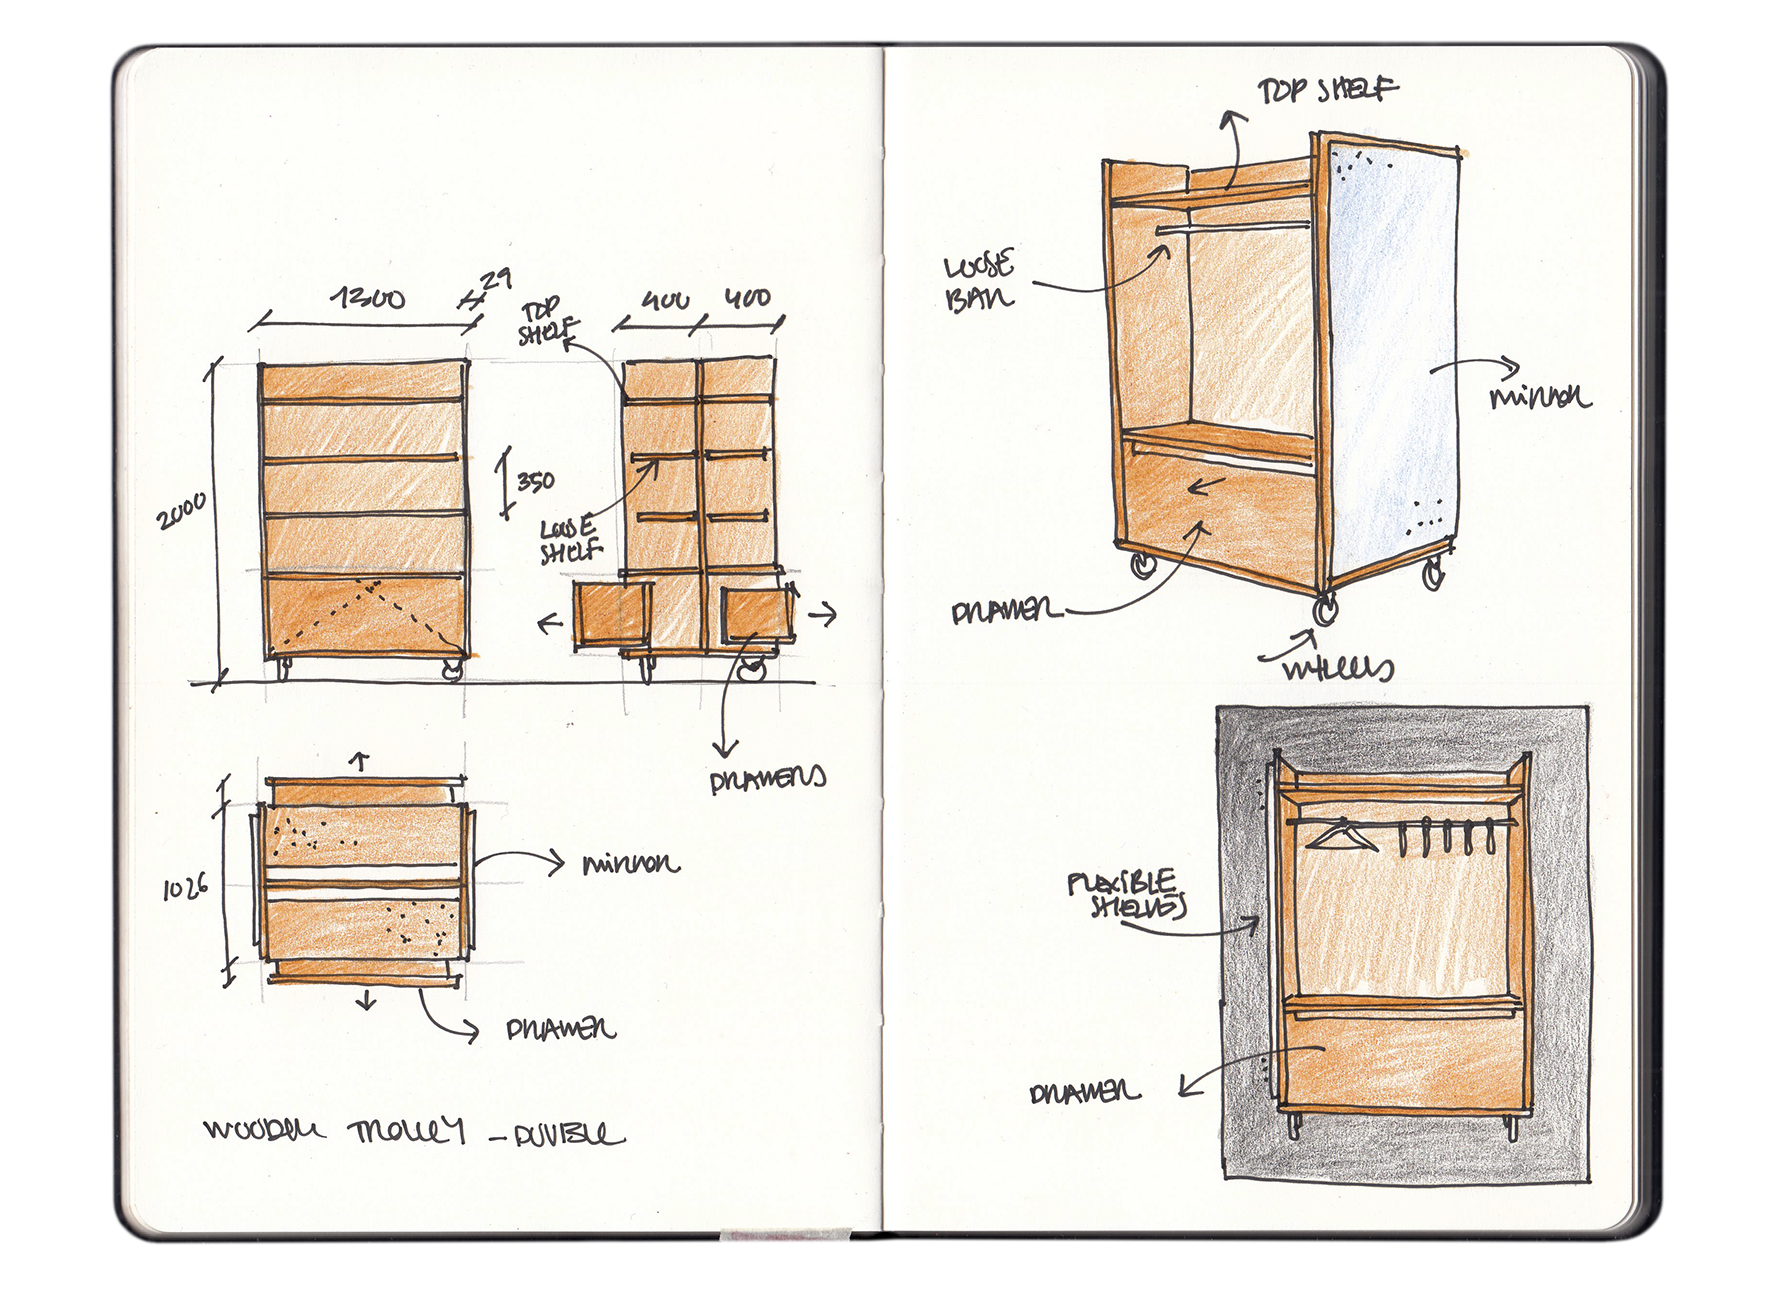 1300
29
TOP
SHELF
400
400
2000
350
LOOSE
SHELF
DRAWERS
1026
MIRROR
DRAWER
WOODEN TROLLEY - DOUBLE
TOP SHELF
LOOSE
BAR
MIRROR
DRAWER
WHEELS
FLEXIBLE
SHELVES
DRAWER